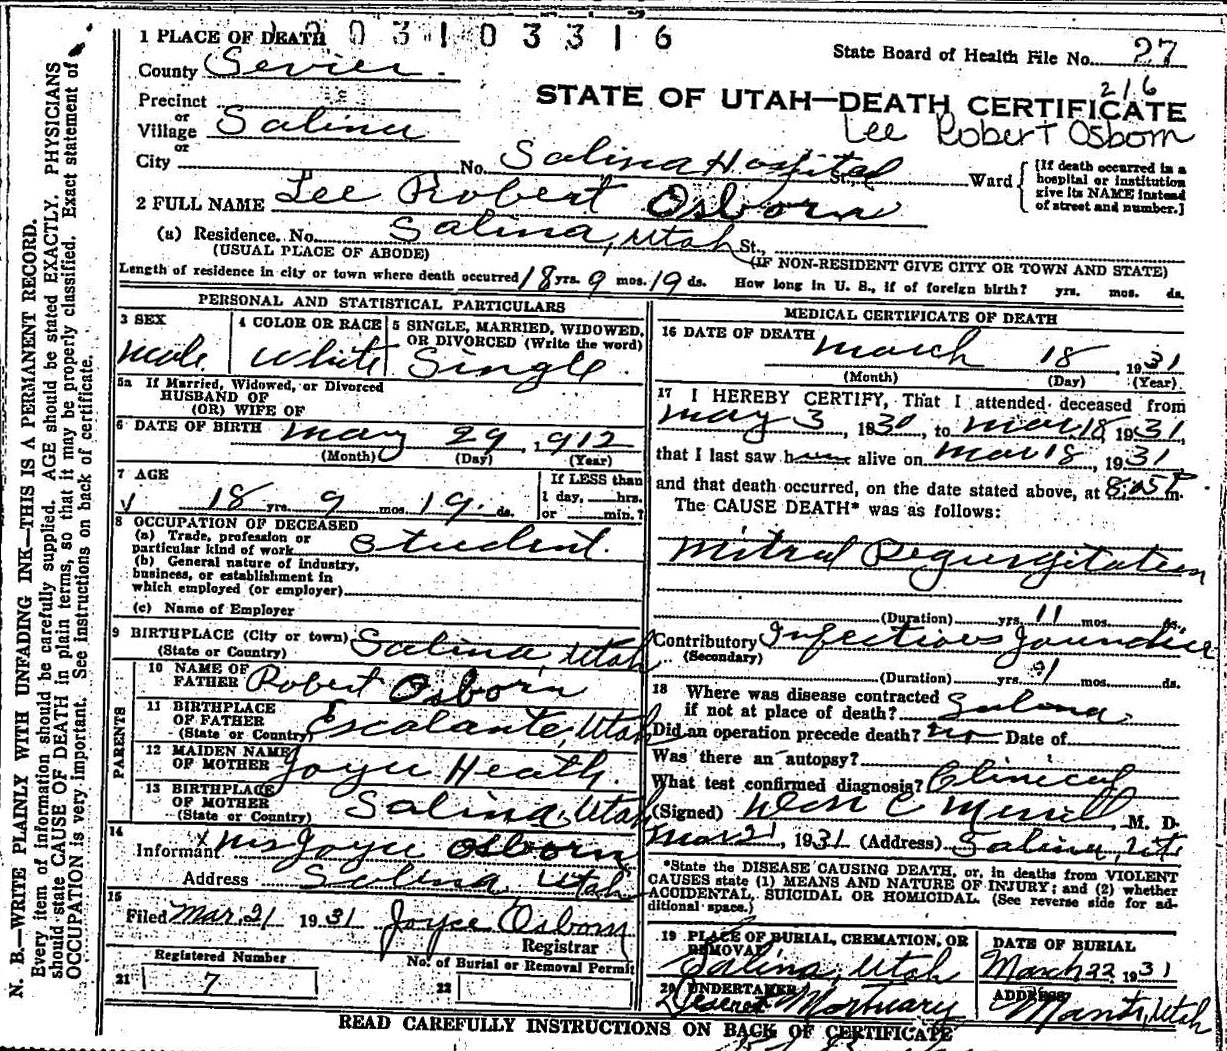 1 PLACE OF DEATH 0 3 1 0 3 3 1 6
County Sevier.
State Board of Health File No. 27
216
Precinct
or
Village Salina
or
STATE OF UTAH—DEATH CERTIFICATE
Lee Robert Osborn
City No. Salina Hospital St., Ward
[If death occurred in a hospital or institution give its NAME instead of street and number.]
2 FULL NAME Lee Robert Osborn
(a) Residence. No. Salina, Utah St.,
(USUAL PLACE OF ABODE) (IF NON-RESIDENT GIVE CITY OR TOWN AND STATE)
Length of residence in city or town where death occurred 18 yrs. 9 mos. 19 ds. How long in U. S., if of foreign birth? yrs. mos. ds.
PERSONAL AND STATISTICAL PARTICULARS
3 SEX 4 COLOR OR RACE 5 SINGLE, MARRIED, WIDOWED,
OR DIVORCED (Write the word)
Male White Single.
5a If Married, Widowed, or Divorced
HUSBAND OF
(OR) WIFE OF
6 DATE OF BIRTH May 29, 1912
(Month) (Day) (Year)
7 AGE If LESS than
18 yrs. 9 mos. 19. ds. 1 day, hrs.
or min.?
8 OCCUPATION OF DECEASED
(a) Trade, profession or
particular kind of work Student.
(b) General nature of industry,
business, or establishment in
which employed (or employer)
(c) Name of Employer
9 BIRTHPLACE (City or town) Salina, Utah
(State or Country)
PARENTS
10 NAME OF
FATHER Robert Osborn
11 BIRTHPLACE
OF FATHER Escalante, Utah
(State or Country)
12 MAIDEN NAME
OF MOTHER Joyce Heath.
13 BIRTHPLACE
OF MOTHER Salina, Utah
(State or Country)
14
Informant Mrs Joyce Osborn
Address Salina, Utah
15
Filed Mar. 21 1931 Joyce Osborn
Registrar
Registered Number No. of Burial or Removal Permit
21 7 22
MEDICAL CERTIFICATE OF DEATH
16 DATE OF DEATH March 18, 1931
(Month) (Day) (Year)
17 I HEREBY CERTIFY, That I attended deceased from
May 3, 1930, to Mar. 18, 1931,
that I last saw him alive on Mar 18, 1931
and that death occurred, on the date stated above, at 8:05 P m.
The CAUSE DEATH* was as follows:
Mitral Regurgitation
(Duration) yrs. 11 mos. ds.
Contributory Infectious Jaundice
(Secondary)
(Duration) yrs. mos. ds.
18 Where was disease contracted
if not at place of death? Salina.
Did an operation precede death? no Date of
Was there an autopsy?
What test confirmed diagnosis? Clinical
(Signed) C Merrill, M. D.
Mar 21, 1931 (Address) Salina, Ut
*State the DISEASE CAUSING DEATH, or, in deaths from VIOLENT
CAUSES state (1) MEANS AND NATURE OF INJURY; and (2) whether
ACCIDENTAL, SUICIDAL OR HOMICIDAL. (See reverse side for ad-
ditional space.)
19 PLACE OF BURIAL, CREMATION, OR
REMOVAL
Salina, Utah
DATE OF BURIAL
March 22 1931
20 UNDERTAKER
Deseret Mortuary
ADDRESS
Manti, Utah
READ CAREFULLY INSTRUCTIONS ON BACK OF CERTIFICATE
N. B.—WRITE PLAINLY WITH UNFADING INK—THIS IS A PERMANENT RECORD.
Every item of information should be carefully supplied. AGE should be stated EXACTLY. PHYSICIANS
should state CAUSE OF DEATH in plain terms, so that it may be properly classified. Exact statement of
OCCUPATION is very important. See instructions on back of certificate.